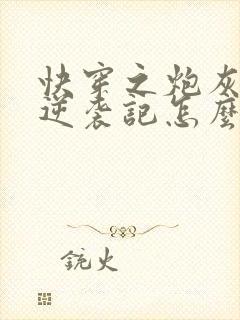 快穿之炮灰
逆袭記怎麼
銃火